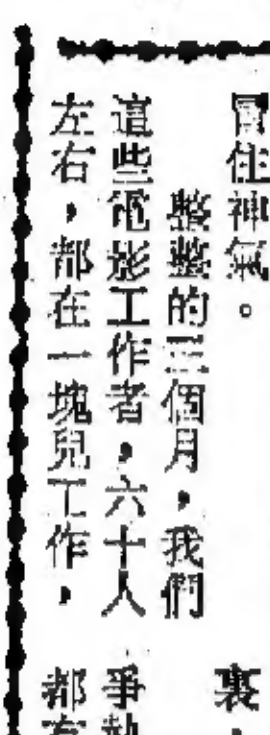 冒住神氣。
整整的三個月，我們
這些電影工作者，六十人
左右，都在一塊兒工作，
裏，
爭執
都有